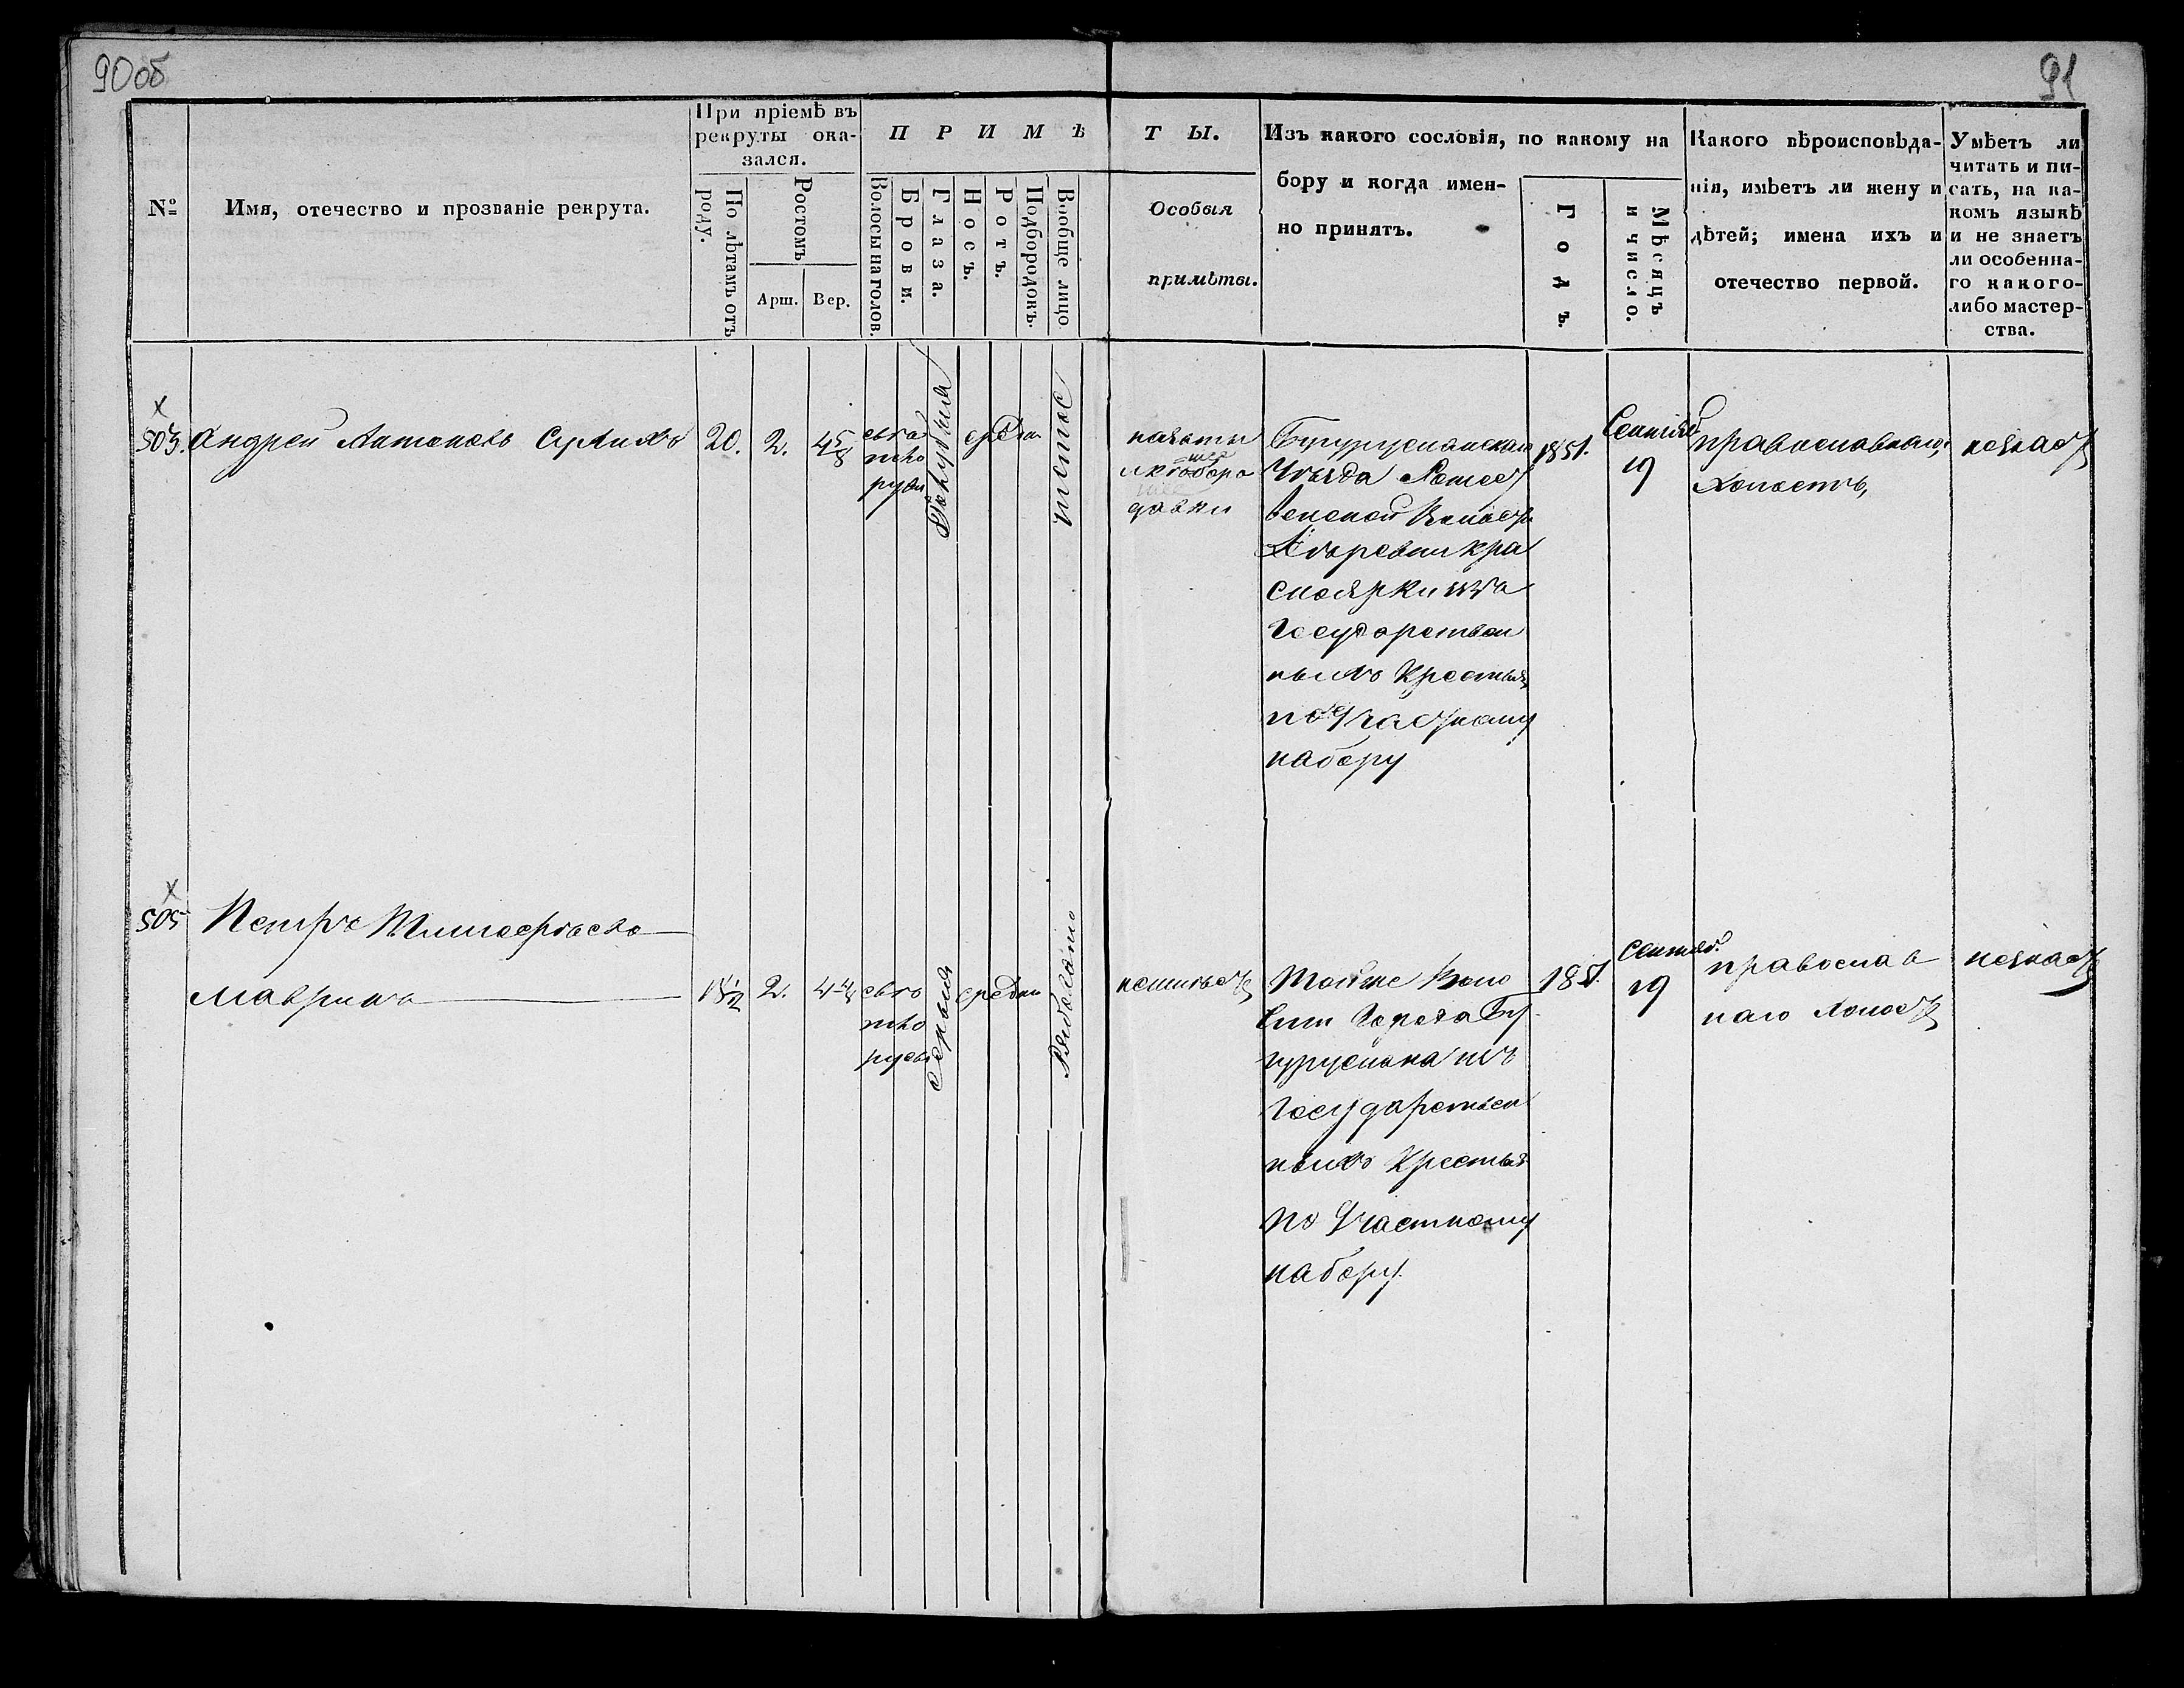 90об
91
№
Имя, отечество и прозваніе рекрута.
При пріемѣ въ
рекруты ока-
зался.
По лѣтамъ отъ
роду.
Ростомъ
Арш.
Вер.
ПРИМѢ
Волосы на голов.
Брови.
Глаза.
Носъ.
Ротъ.
Подбородокъ.
Вообще лицо
ТЫ.
Особыя
примѣты.
Изъ какого сословія, по какому на
бору и когда имен-
но принятъ.
Годъ.
Мѣсяцъ
и число.
Какого вѣроисповѣда-
нія, имѣетъ ли жену и
дѣтей; имена ихъ и
отечество первой.
Умѣетъ ли
читать и пи-
сать, на ка-
комъ языкѣ
и не знаетъ
ли особенна-
го какого-
либо мастер-
ства.
Андрей Антоновъ
20.
2.
4 5/8
свѣт
ло
русы
голубыя
средн
чистое
бородавки
Бугурусланскаго
Уѣзда
Деревни Кра
сноярки изъ
Государствен
ныхъ Крестьян
по Участному
набору
1851.
Сентяб
19
православнаго,
Холостъ,
незнаетъ
505
Петръ
Мавринъ
2.
4 4/8
свѣт
ло
русы
сѣрыя
средн
Рябовато
неимѣетъ
Тойже Воло
сти Города Бу
гуруслана изъ
Государствен
ныхъ Крестьян
по Участному
набору.
1851.
Сентяб.
19
православ
наго Холостъ
незнаетъ